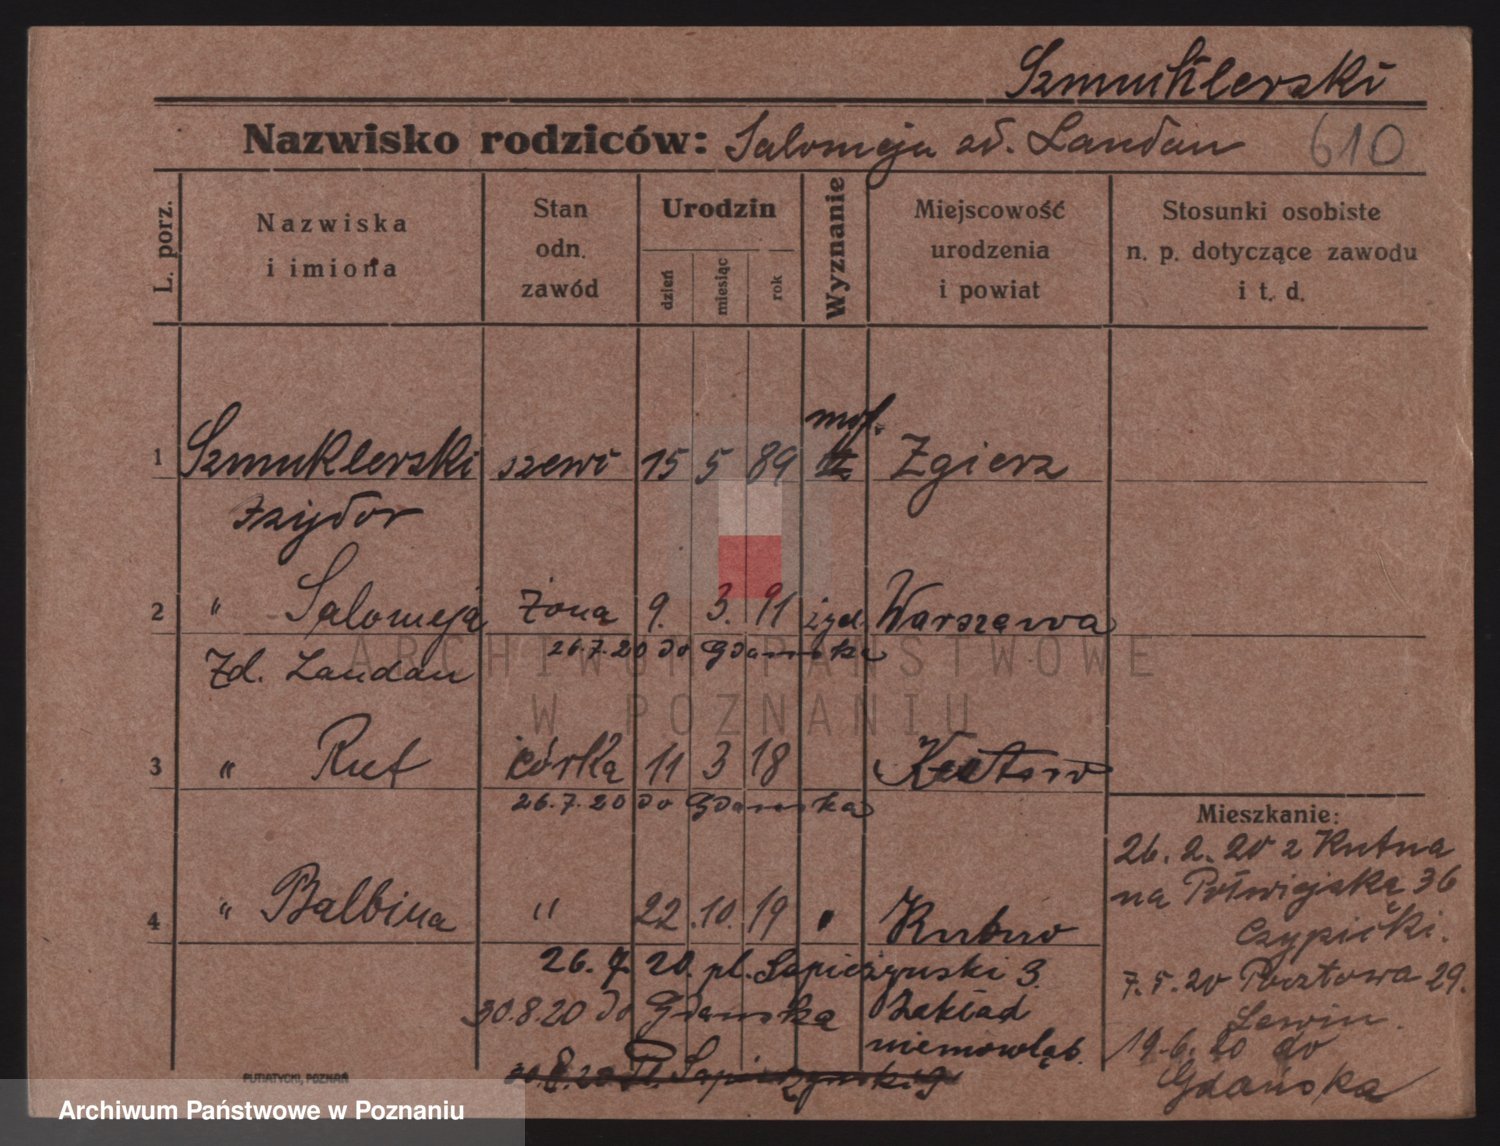 Szmuklerski
Nazwisko rodziców: Salomeja zd. Landau 610
L. porz.
Nazwiska i imiona
Stan odn. zawód
Urodzin
dzień
miesiąc
rok
Wyznanie
Miejscowość urodzenia i powiat
Stosunki osobiste n. p. dotyczące zawodu i t. d.
1 Szmuklerski szewc 15 5 89 moj. Zgierz
Izydor
2 " Salomeja żona 9. 3. 91 żyd. Warszawa
Zd. Landau 26.7.20 do Gdańska
3 " Rut córka 11 3 18 Kutno
26.7.20 do Gdańska
4 " Balbina " 22. 10. 19 " Kutno
26. 7. 20. pl. Sapieżyński 3.
30.8.20 do Gdańska Zakład
niemowląt.
30.8.20 Pl. Sapieżyński 9
Mieszkanie:
26. 2. 20 z Kutna
na Półwiejską 36
Czypicki.
7. 5. 20 Pocztowa 29.
Lewin.
19. 6. 20 do
Gdańska
PUTIATYCKI, POZNAŃ
ARCHIWUM PAŃSTWOWE
W POZNANIU
Archiwum Państwowe w Poznaniu